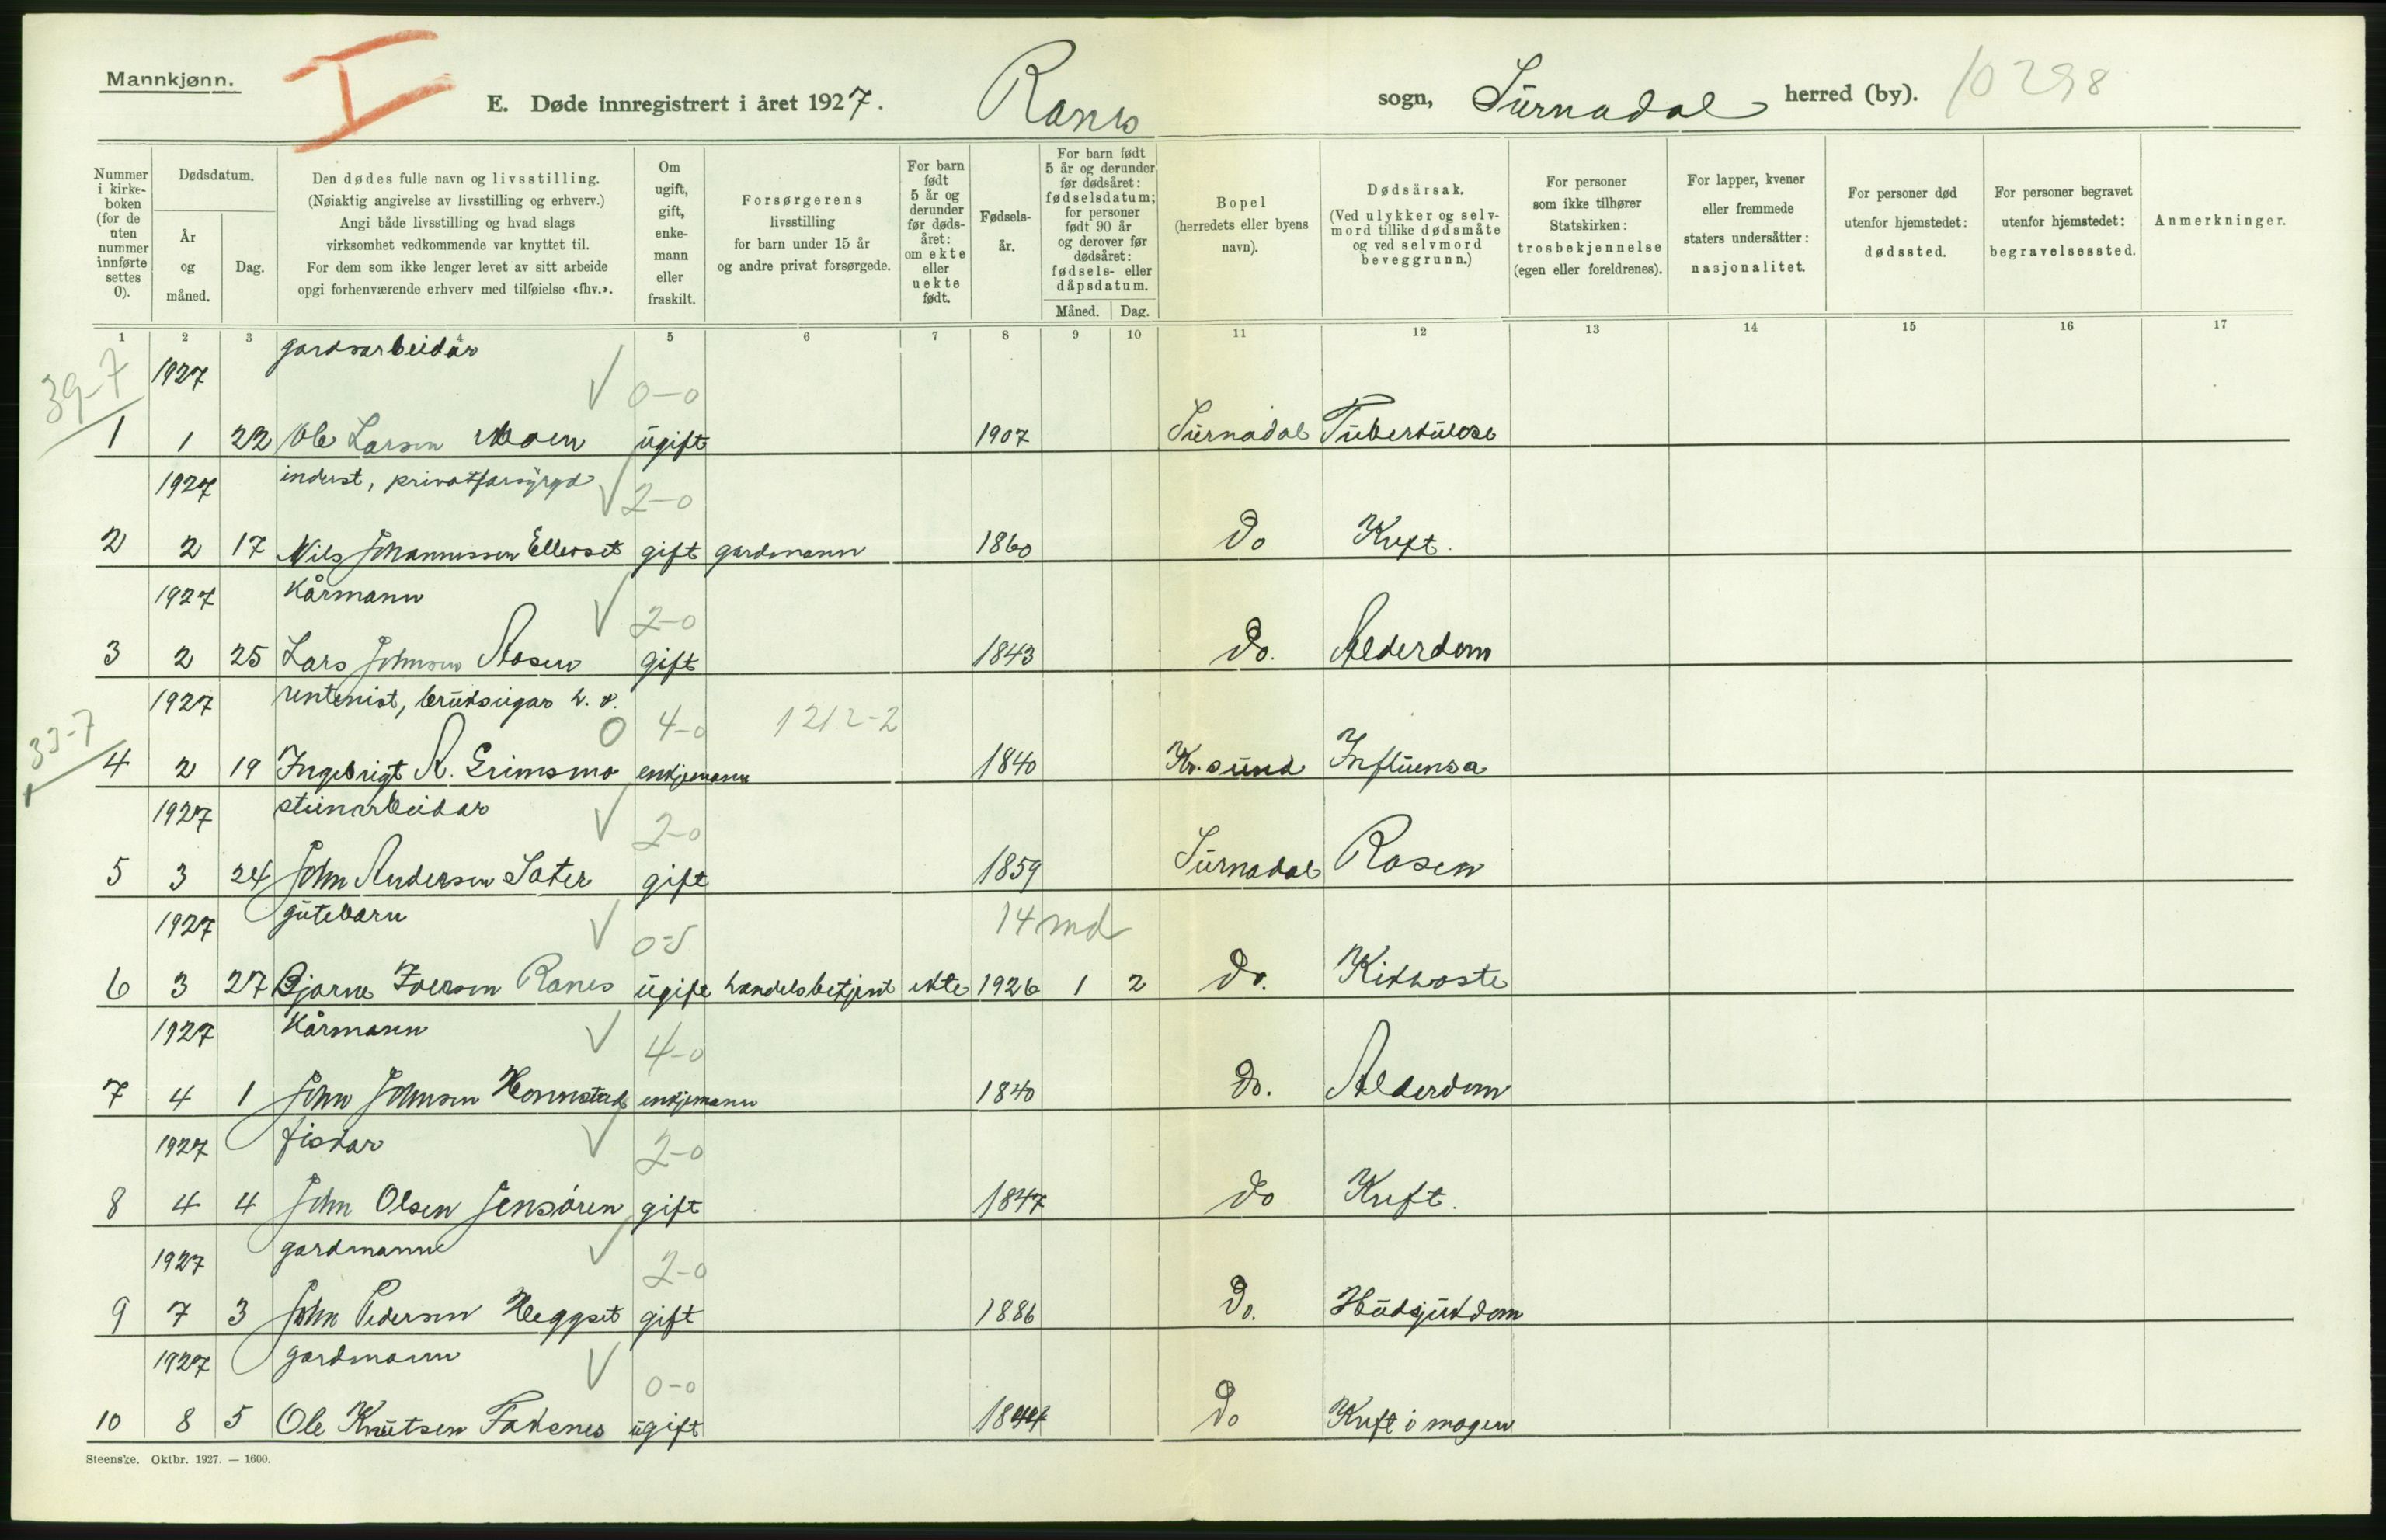 Mannkjønn.
I
E. Døde innregistrert i året 1927. Ranes sogn, Surnadal herred (by). 10298
Nummer i kirkeboken (for de uten nummer innførte settes 0).
Dødsdatum.
År og måned.
Dag.
Den dødes fulle navn og livsstilling.
(Nøiaktig angivelse av livsstilling og erhverv.)
Angi både livsstilling og hvad slags
virksomhet vedkommende var knyttet til.
For dem som ikke lenger levet av sitt arbeide
opgi forhenværende erhverv med tilføielse «fhv.».
Om ugift, gift, enkemann eller fraskilt.
Forsørgerens
livsstilling
for barn under 15 år
og andre privat forsørgede.
For barn født 5 år og derunder før dødsåret: om ekte eller uekte født.
Fødselsår.
For barn født 5 år og derunder før dødsåret: fødselsdatum; for personer født 90 år og derover før dødsåret: fødsels- eller dåpsdatum.
Måned. Dag.
Bopel
(herredets eller byens navn).
Dødsårsak.
(Ved ulykker og selvmord tillike dødsmåte og ved selvmord beveggrunn.)
For personer som ikke tilhører Statskirken: trosbekjennelse (egen eller foreldrenes).
For lapper, kvener eller fremmede staters undersåtter: nasjonalitet.
For personer død utenfor hjemstedet: dødssted.
For personer begravet utenfor hjemstedet: begravelsessted.
Anmerkninger.
1 2 3 4 5 6 7 8 9 10 11 12 13 14 15 16 17
39-7 1927 gardsarbeidar 0-0
1 1 22 Ole Larsen Moen ugift 1907 Surnadal Tuberkulose
1927 inderst, privatforsyrgd 2-0
2 2 17 Nils Johannessen Ellevset gift gardmann 1860 do Kreft.
1927 Kårmann 2-0
3 2 25 Lars Johnsen Aasen gift 1843 do. Alderdom
1927 rentenist, brukseigar h. v. 4-0 1212-2
33-7
4 2 19 Ingebrigt A. Grimsmo enkjemann 1840 Kr.sund Influensa
1927 steinarbeidar 2-0
5 3 24 John Andersen Sæter gift 1859 Surnadal Rosen
1927 gutebarn 0-5 14 md
6 3 27 Bjarne Iversen Ranes ugift handelsbetjent ekte 1926 1 2 do. Kikhoste
1927 Kårmann 4-0
7 4 1 John Johnsen Honnstad enkjemann 1840 do. Alderdom
1927 fiskar 2-0
8 4 4 John Olsen Jensøren gift 1847 do Kreft.
1927 gardmann 2-0
9 7 3 John Pedersen Heggset gift 1886 do. Hudsjukdom
1927 gardmann 0-0
10 8 5 Ole Knutsen Faksnes ugift do Kreft i magen
Steenske. Oktbr. 1927. — 1600.